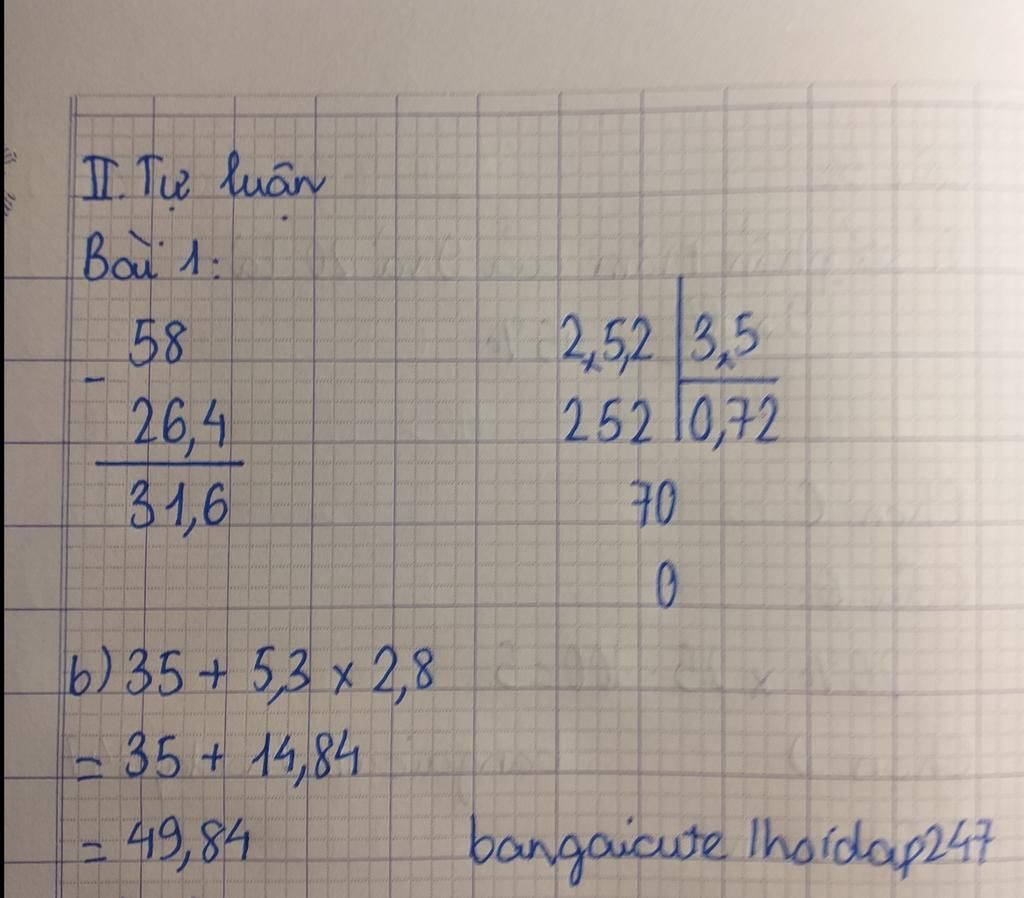 II. Tự luận
Bài 1:
58
-
26,4
31,6
2,5,2 3,5
252 0,72
70
0
b) 35 + 5,3 x 2,8
= 35 + 14,84
= 49,84
bangaicute lhoidap247